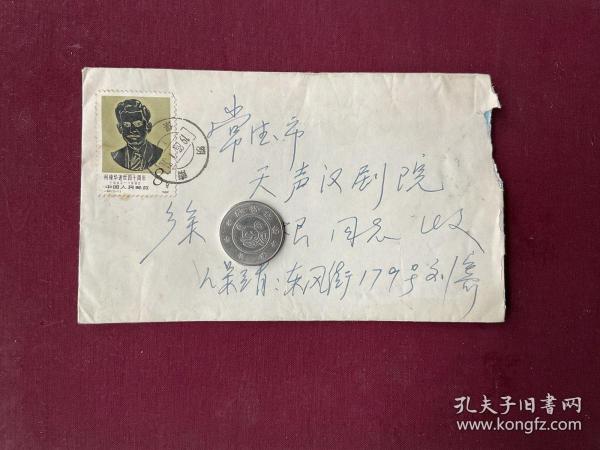 柯棣华逝世四十周年
1942—1982
中国人民邮政
8
常德市
天声汉剧院
徐 同志 收
东风街179号刘寄
孔夫子旧书网
www.kongfz.com